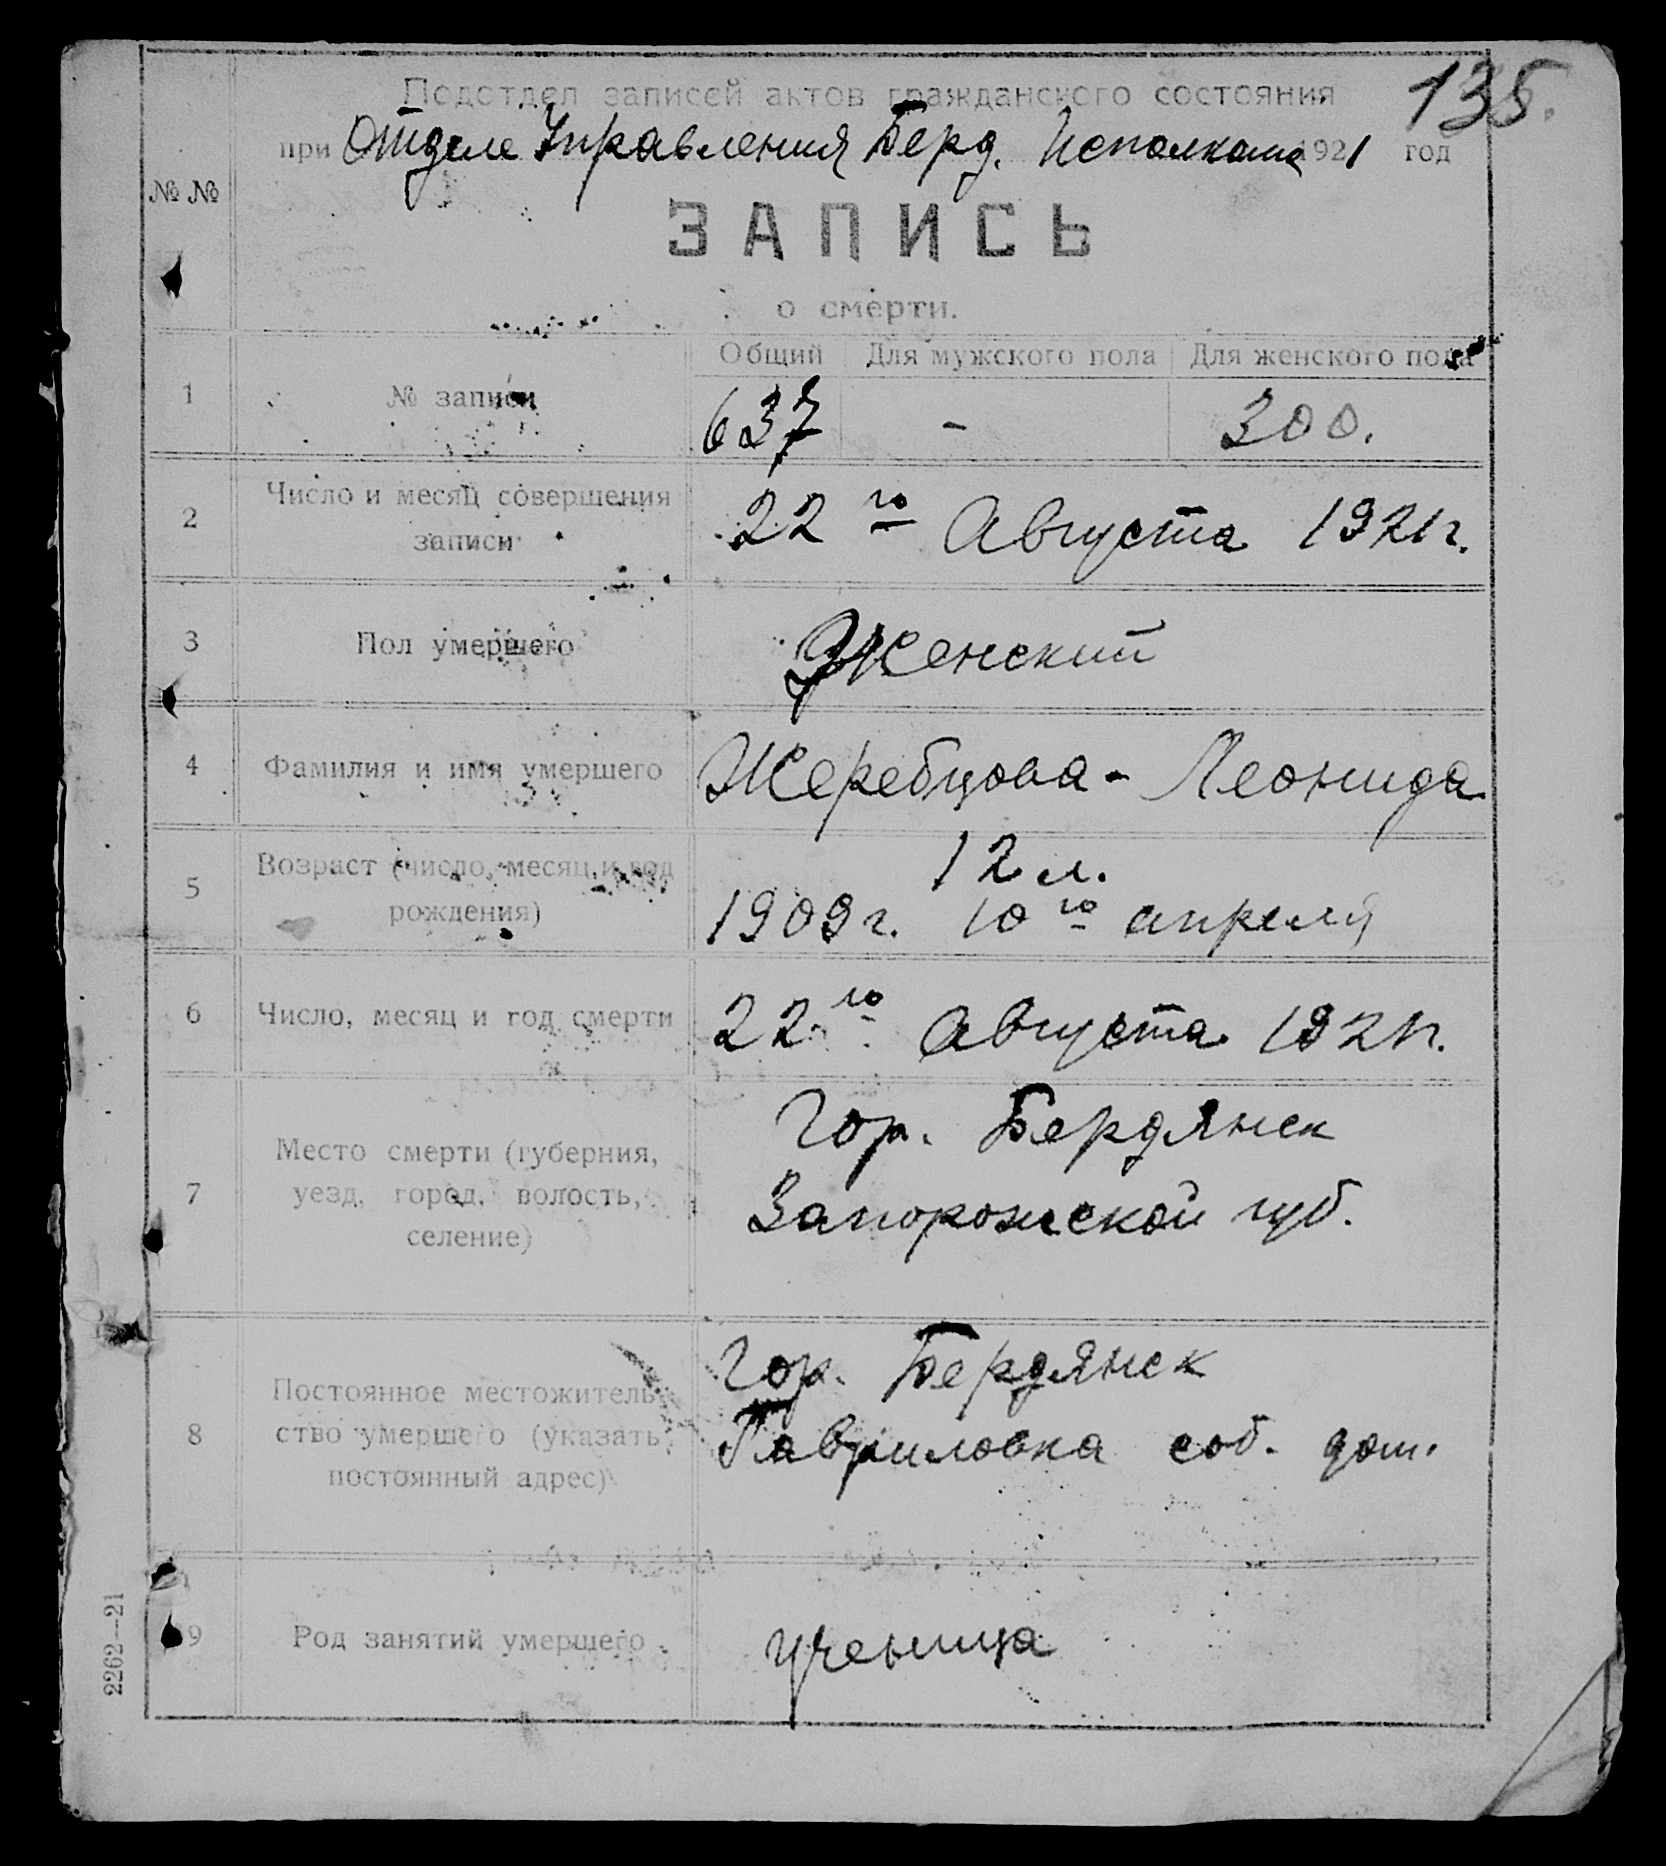 135.
Подотдел записей актов гражданского состояния
при Отделе Управления Берд. Исполкома 1921 год
№ №
ЗАПИСЬ
о смерти.
Общий Для мужского пола Для женского пола
1 № записи 637 - 300.
2 Число и месяц совершения
записи 22го Августа 1921г.
3 Пол умершего Женский
4 Фамилия и имя умершего Жеребцова - Леонида
12 л.
5 Возраст (число, месяц и год
рождения) 1909г. 10го апреля
6 Число, месяц и год смерти 22го Августа 1921г.
7 Место смерти (губерния,
уезд, город, волость,
селение)
Гор. Бердянск
Запорожской губ.
8 Постоянное местожитель-
ство умершего (указать
постоянный адрес)
Гор. Бердянск
Гавриловка соб. дом.
9 Род занятий умершего ученица
2262—21